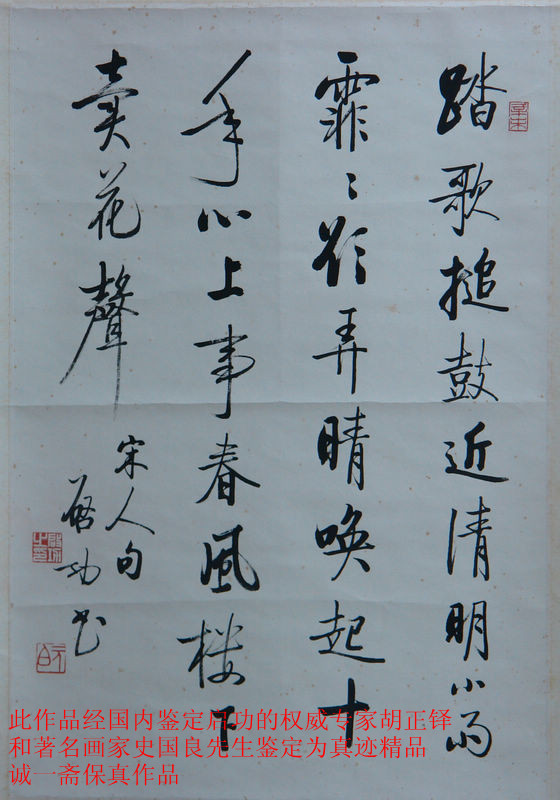 踏歌搥鼓近清明小雨
霏〻欲弄晴喚起十
年心上事春風樓下
賣花聲
宋人句
啟功书
此作品经国内鉴定启功的权威专家胡正铎
和著名画家史国良先生鉴定为真迹精品
诚一斋保真作品